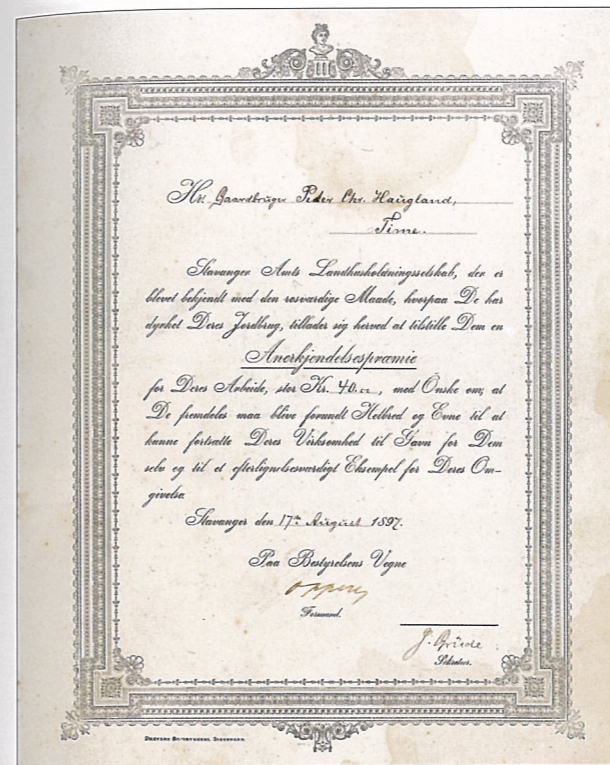 Hr. Gaardbruger Peder Chr. Haugland,
Time.
Stavanger Amts Landhusholdningsselskab, der er
blevet bekjendt med den rosværdige Maade, hvorpaa De har
dyrket Deres Jordbrug, tillader sig herved at tilstille Dem en
Anerkjendelsespræmie
for Deres Arbeide, stor Kr. 40.00, med Ønske om, at
De fremdeles maa blive forundt Helbred og Evne til at
kunne fortsætte Deres Virksomhed til Gavn for Dem
selv og til et efterlignelsesværdigt Eksempel for Deres Om-
givelse.
Stavanger den 17de August 1897.
Paa Bestyrelsens Vegne
Formand.
Sekretær.